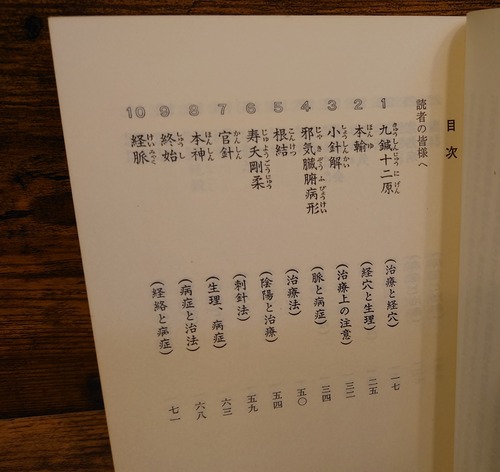 目次
読者の皆様へ
1 九鍼十二原 (治療と経穴) 一七
2 本輸 (経穴と生理) 二五
3 小針解 (治療上の注意) 三二
4 邪気臓腑病形 (脈と病症) 三四
5 根結 (治療法) 五〇
6 寿夭剛柔 (陰陽と治療) 五四
7 官針 (刺針法) 五九
8 本神 (生理、病症) 六三
9 終始 (病症と治法) 六八
10 経脈 (経絡と病症) 七一